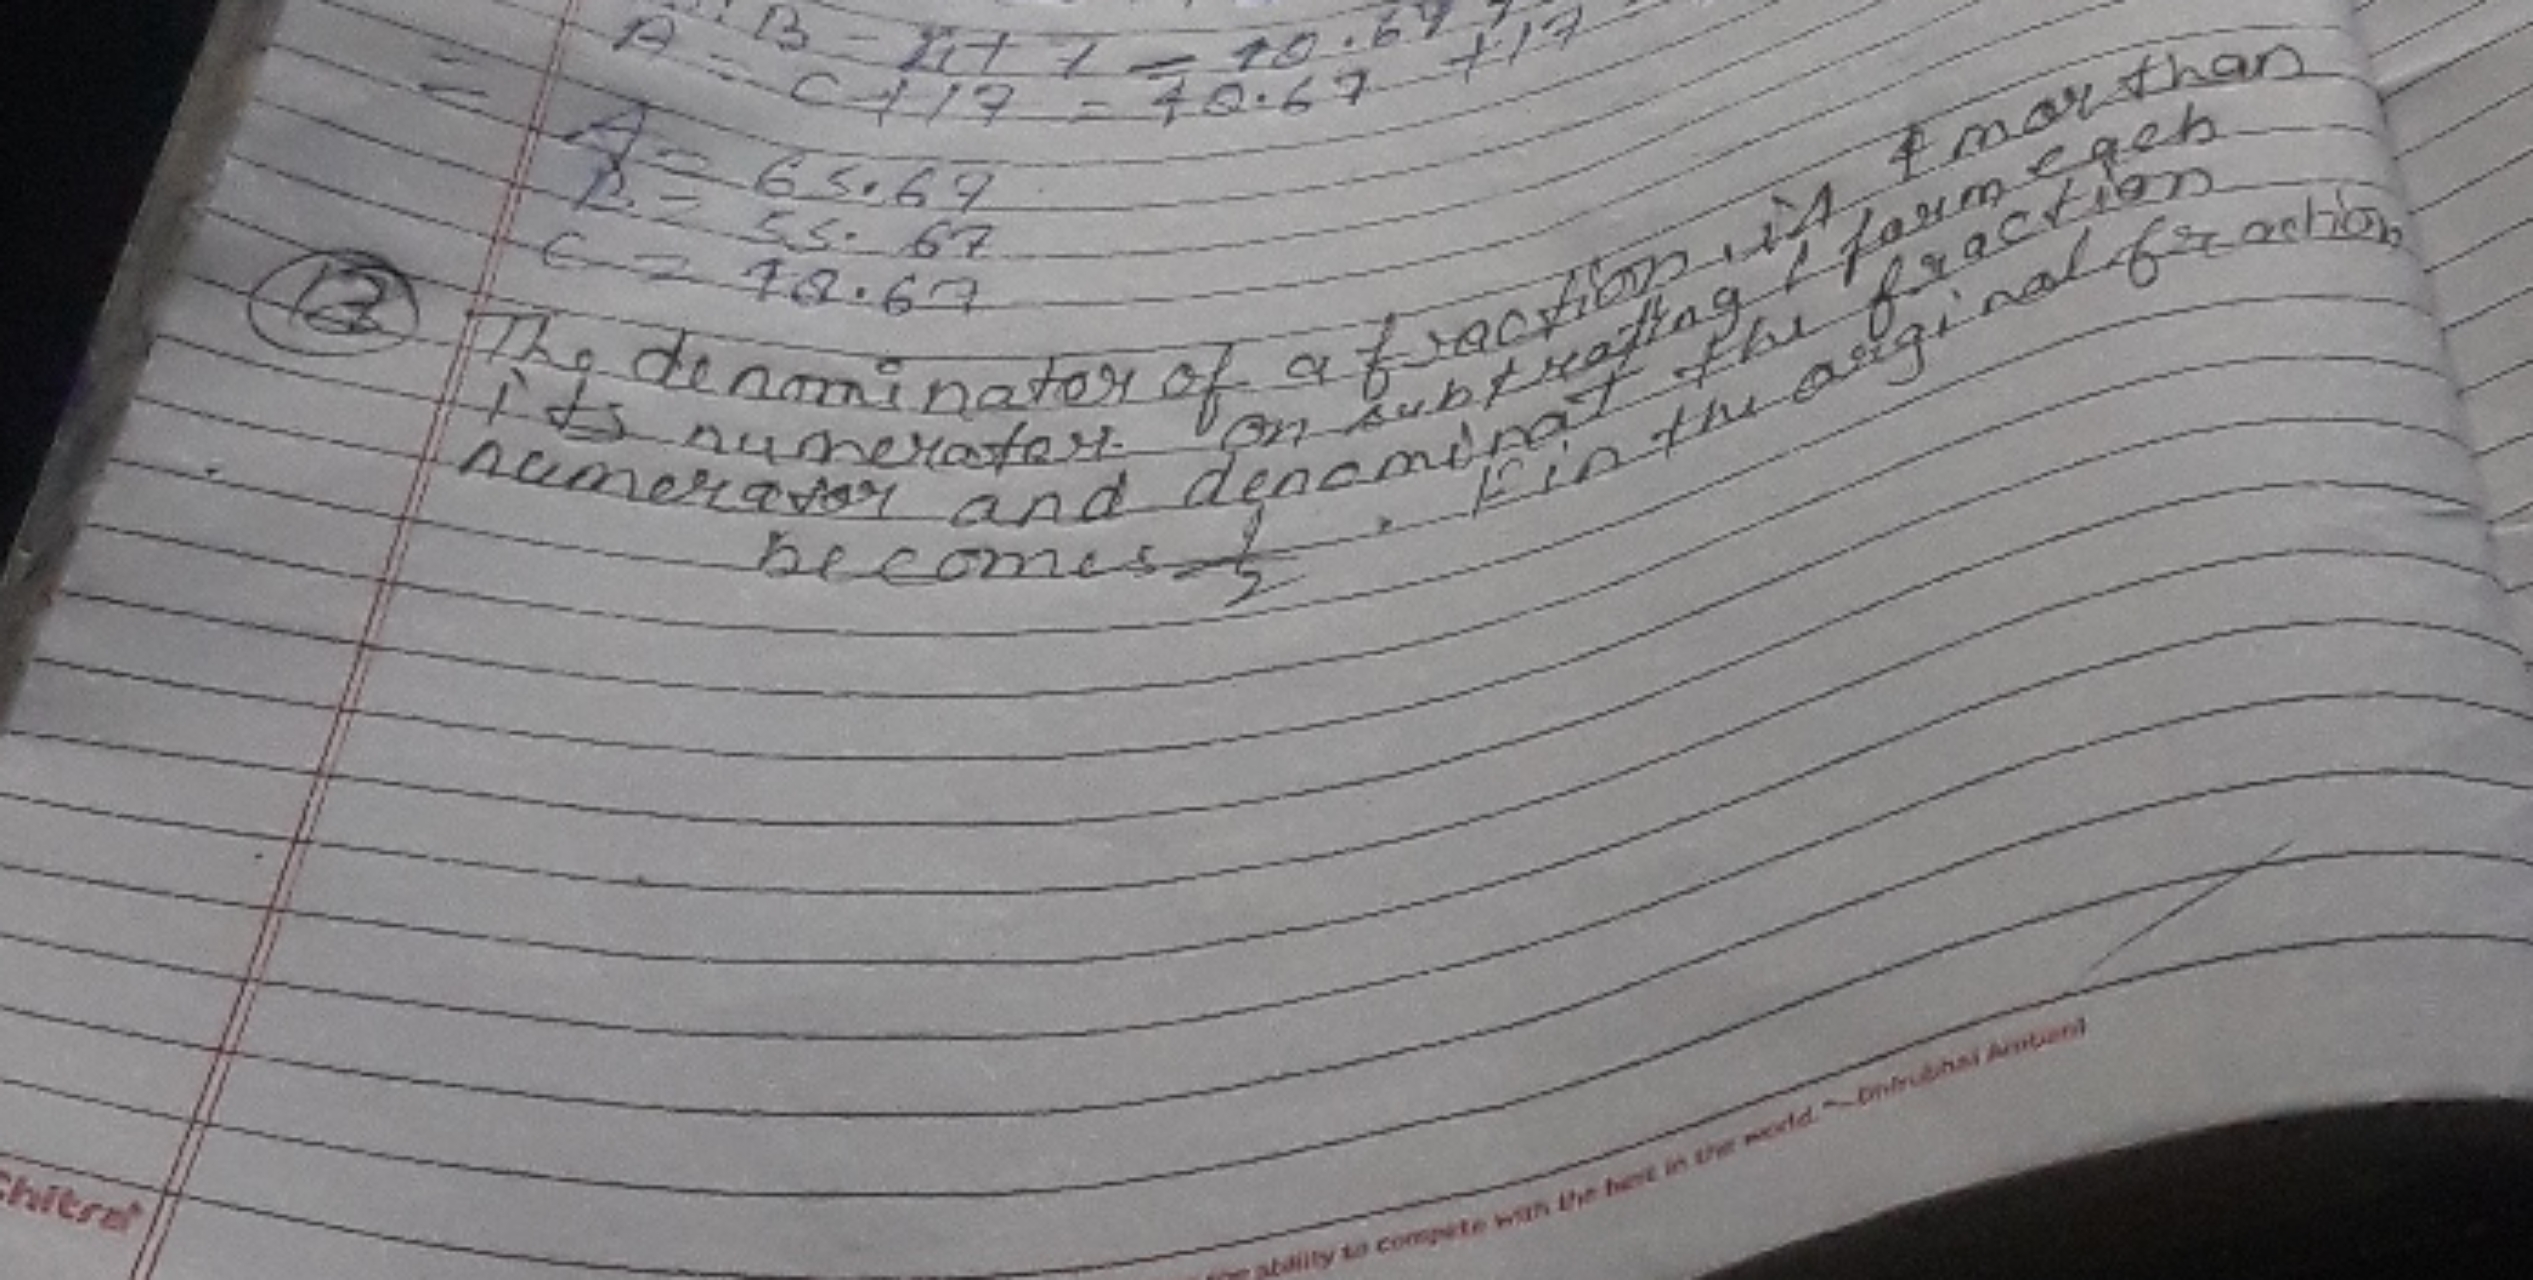 B = x + 7 = 48.67
A = C + 17 = 48.67 + 17
= A = 65.67
B = 55.67
C = 48.67
(12) The denominator of a fraction is 4 mor than
its numerator. on subtrating 1 form egch
numerator and denominat the fraction
becomes 1/2. Fin the orginal fraction
Chitra
ability to compete with the best in the world." ~Dhirubhai Ambani